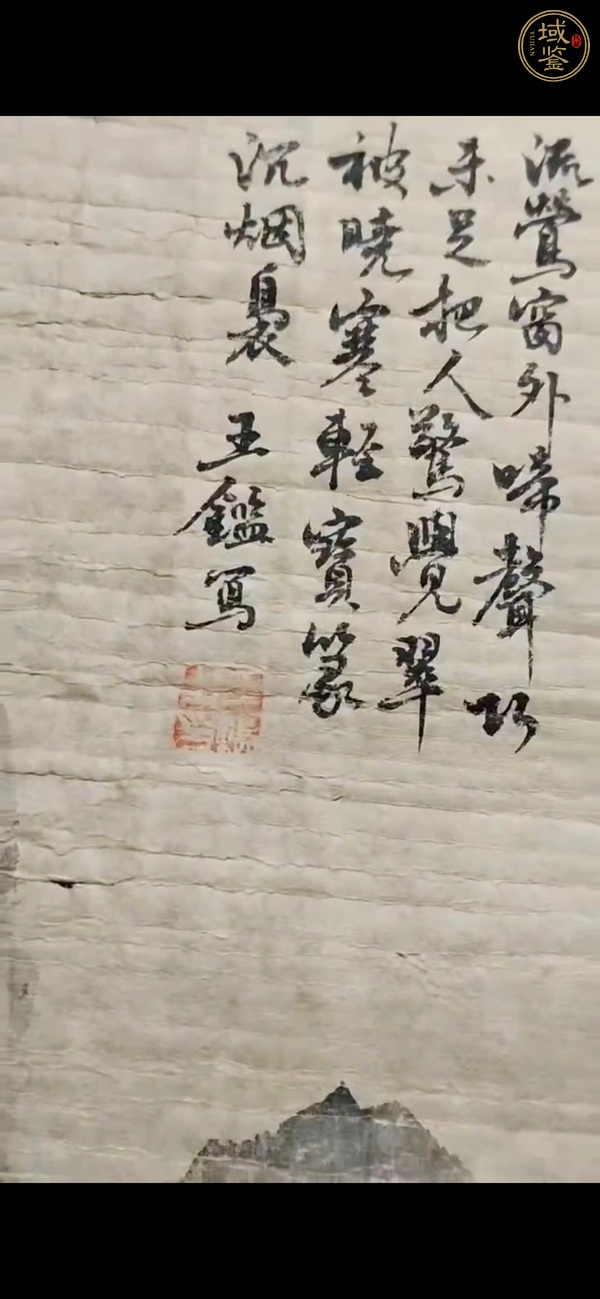 域鉴
YUJIAN
流鶯窗外啼聲巧
未足把人驚覺翠
被曉寒輕寶篆
沉烟裊 王鑑寫